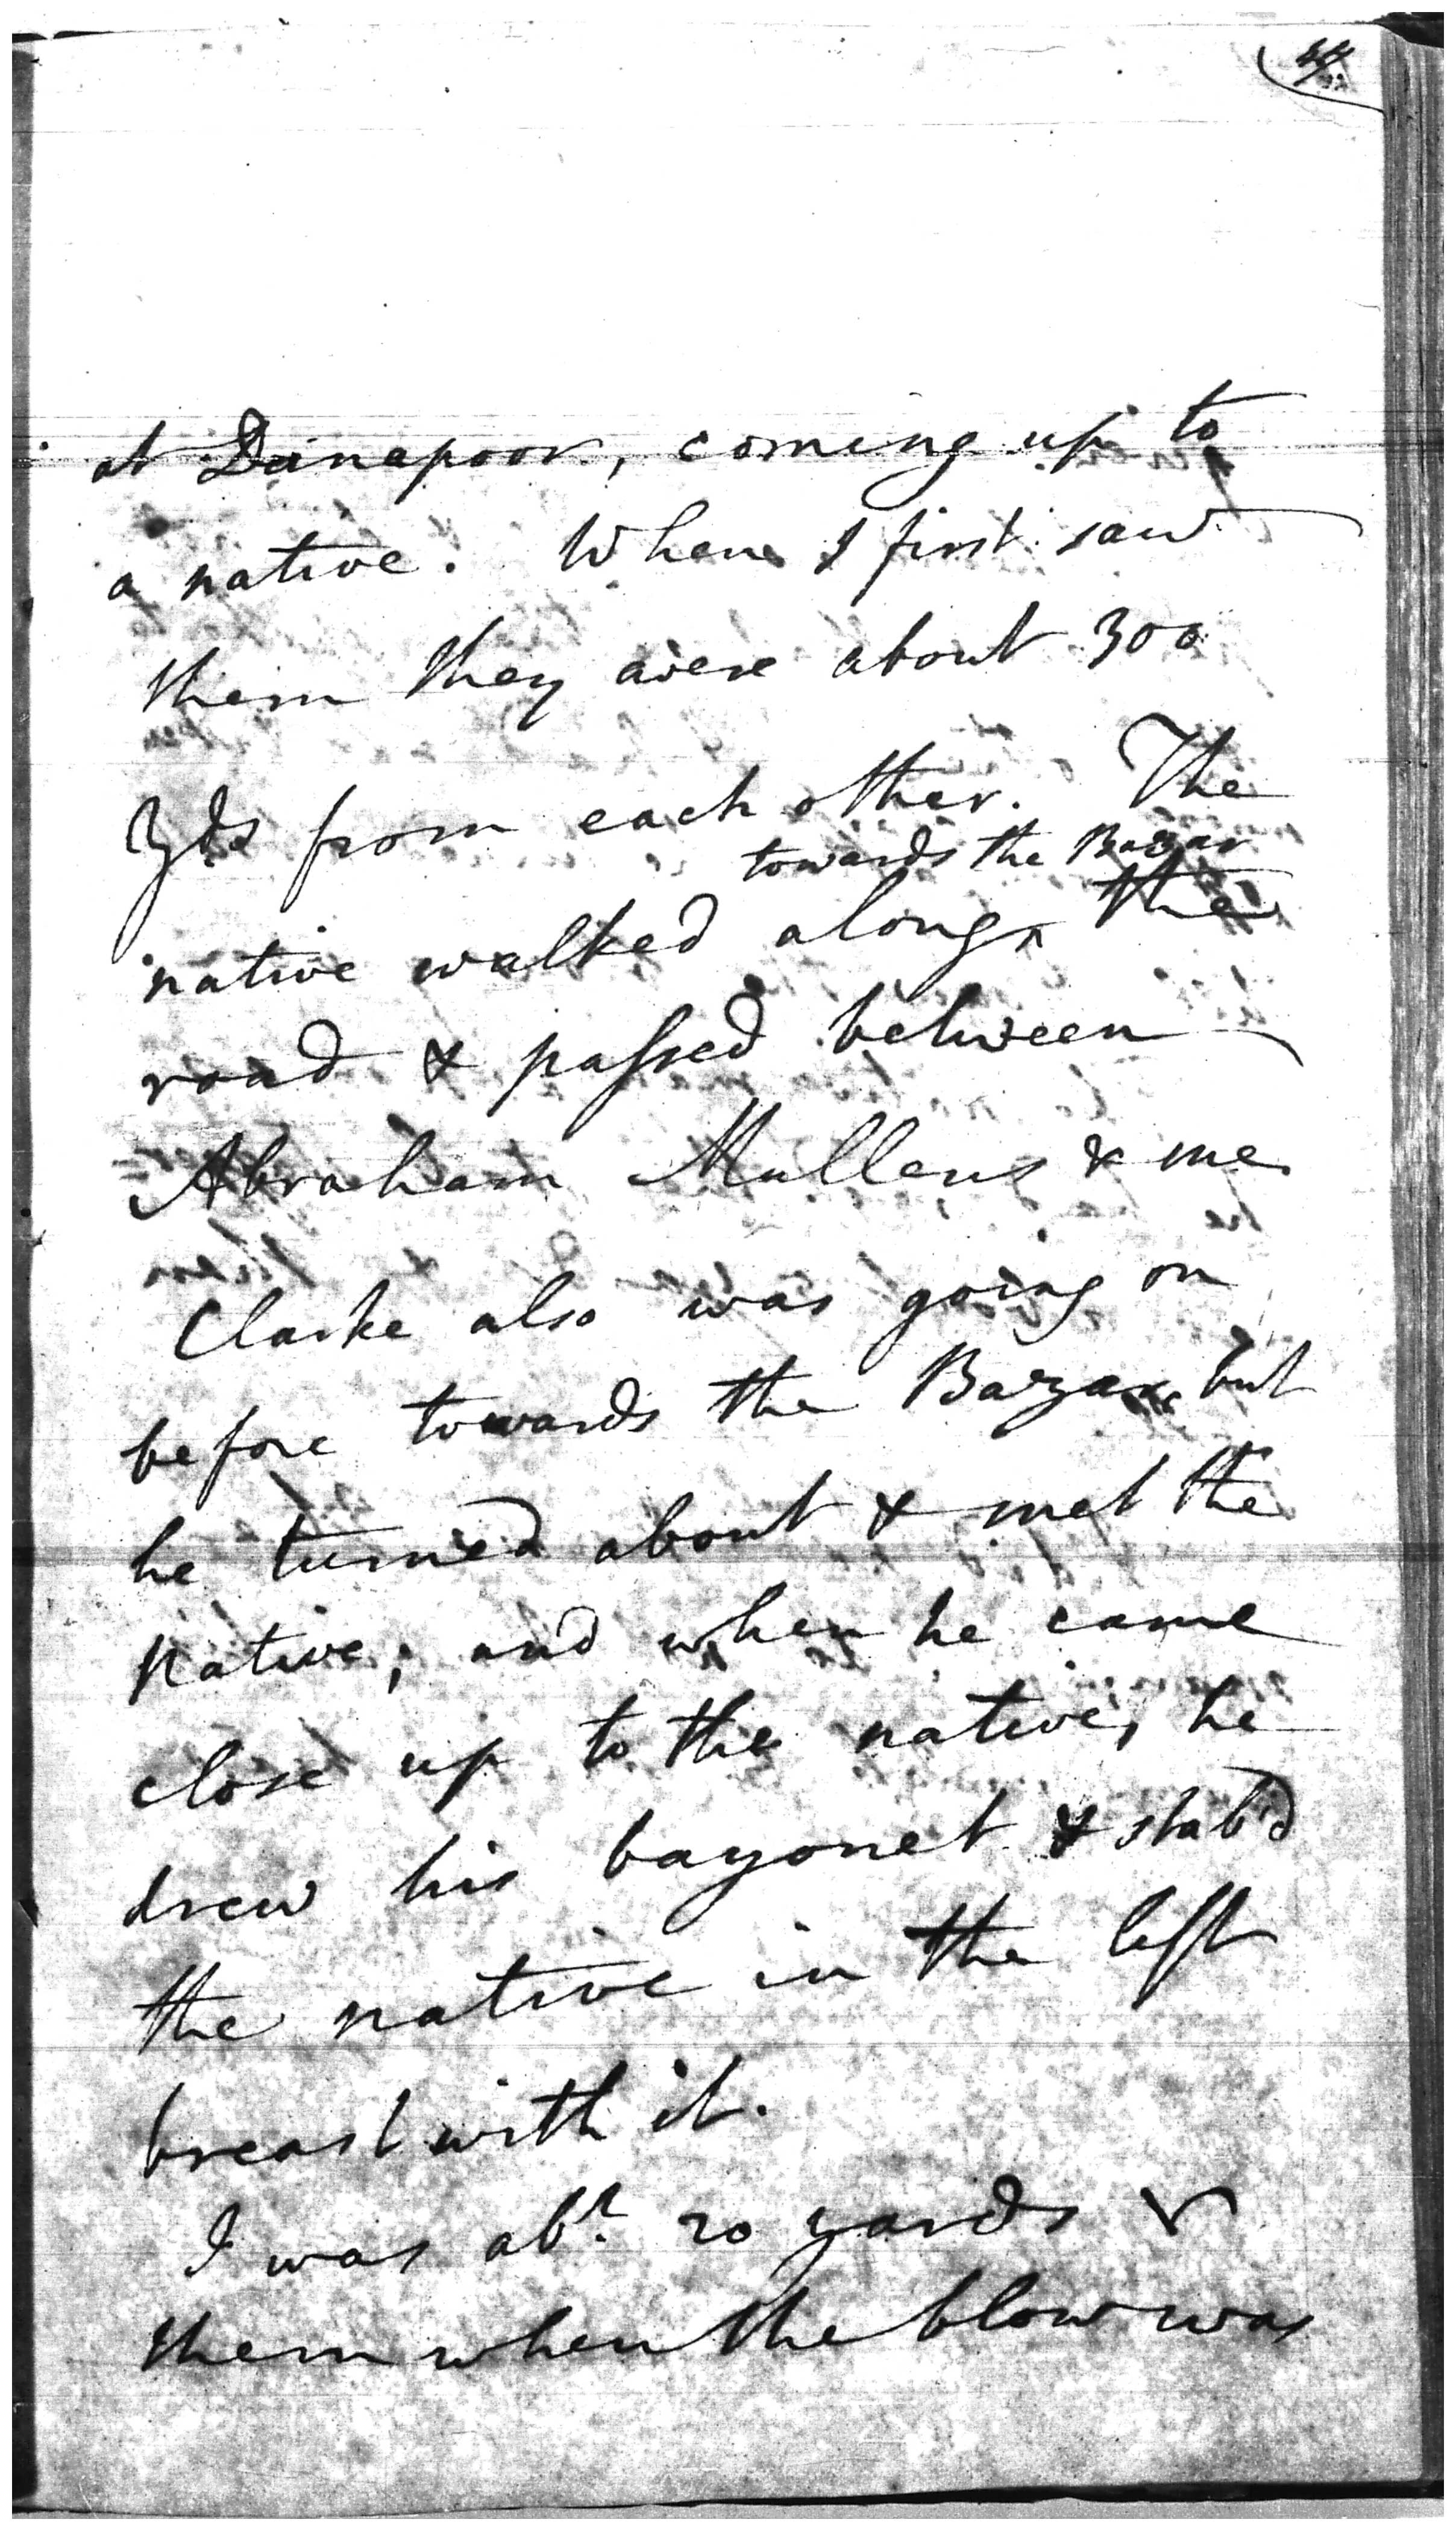 at Dinapoor, coming up to
a native. When I first saw
them they were about 300
Yds from each other. The
towards the Bazar
native walked along ‸ the
road & passed between
Abraham Mullens & me
Clarke also was going on
before towards the Bazar but
he turned about & met the
native; and when he came
close up to the native, he
drew his bayonet & stab'd
the native in the left
breast with it.
I was abt. 20 yards
them when the blow was